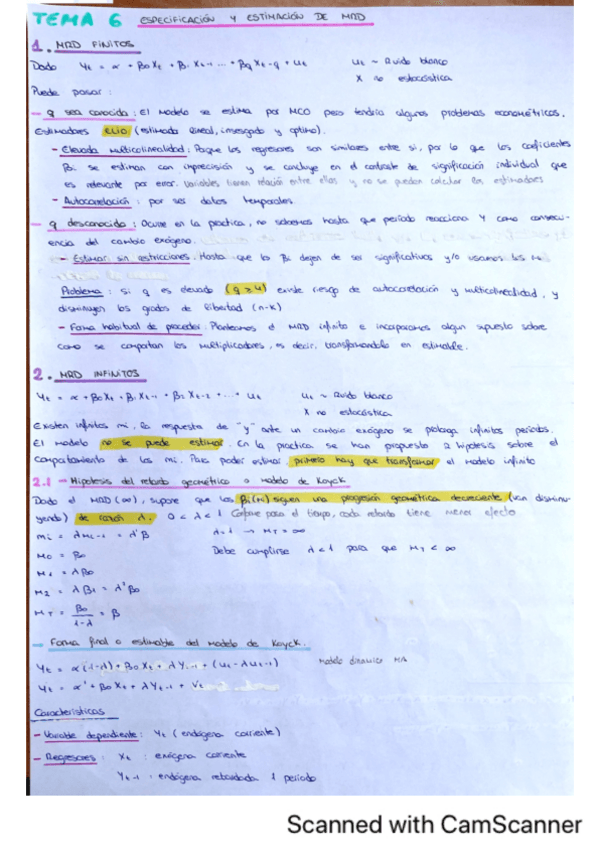 TEMA 6 ESPECIFICACIÓN Y ESTIMACIÓN DE MRD
1. MRD FINITOS
Dado Yt = α + β0Xt + β1 Xt-1 ... + βq Xt-q + ut   ut ~ Ruido blanco
X no estocástica
Puede pasar:
- q sea conocida: El modelo se estima por MCO pero tendría algunos problemas econométricos.
Estimadores ELIO (estimador lineal, insesgado y óptimo).
- Elevada Multicolinealidad: Porque los regresores son similares entre si, por lo que los coeficientes
βi se estiman con imprecisión y se concluye en el contraste de significación individual que
es relevante por error. Variables tienen relación entre ellas y no se pueden calcular los estimadores
- Autocorrelación: por ser datos temporales.
- q desconocida: Ocurre en la práctica, no sabemos hasta que periodo reacciona Y como consecu-
encia del cambio exógeno.
- Estimar sin restricciones. Hasta que los βi dejen de ser significativos y/o usamos los
Problema: Si q es elevado (q ≥ 4) existe riesgo de autocorrelación y multicolinealidad, y
disminuyen los grados de libertad (n-k)
- Forma habitual de proceder: Planteamos el MRD infinito e incorporamos algun supuesto sobre
como se comportan los multiplicadores, es decir, transformandolo en estimable.
2. MRD INFINITOS
Yt = α + β0Xt + β1 Xt-1 + β2 Xt-2 + ... + ut   ut ~ Ruido blanco
X no estocástica
Existen infinitos mi, la respuesta de "y" ante un cambio exógeno se prolonga infinitos periodos.
El modelo no se puede estimar. En la practica se han propuesto 2 hipotesis sobre el
comportamiento de los mi. Para poder estimar, primero hay que transformar el modelo infinito
2.1 - Hipotesis del retardo geométrico o modelo de Koyck
Dado el MRD (∞), supone que los βi (mi) siguen una progresión geométrica decreciente (van disminu-
yendo) de razón λ. 0 < λ < 1 Conforme pasa el tiempo, cada retardo tiene menor efecto
mi = λmi-1 = λⁱβ   λ=1 → MT = ∞
M0 = β0   Debe cumplirse λ<1 para que MT < ∞
M1 = λβ0
M2 = λβ1 = λ²β0
MT = β0 / 1-λ = β
- Forma final o estimable del modelo de Koyck.
Yt = α(1-λ) + β0Xt + λYt-1 + (ut - λut-1)   Modelo dinamico MA
Yt = α' + β0Xt + λYt-1 + Vt
Características
- Variable dependiente: Yt (endógena corriente)
- Regresores: Xt : exógena corriente
Yt-1 : endógena retardada 1 periodo
Scanned with CamScanner